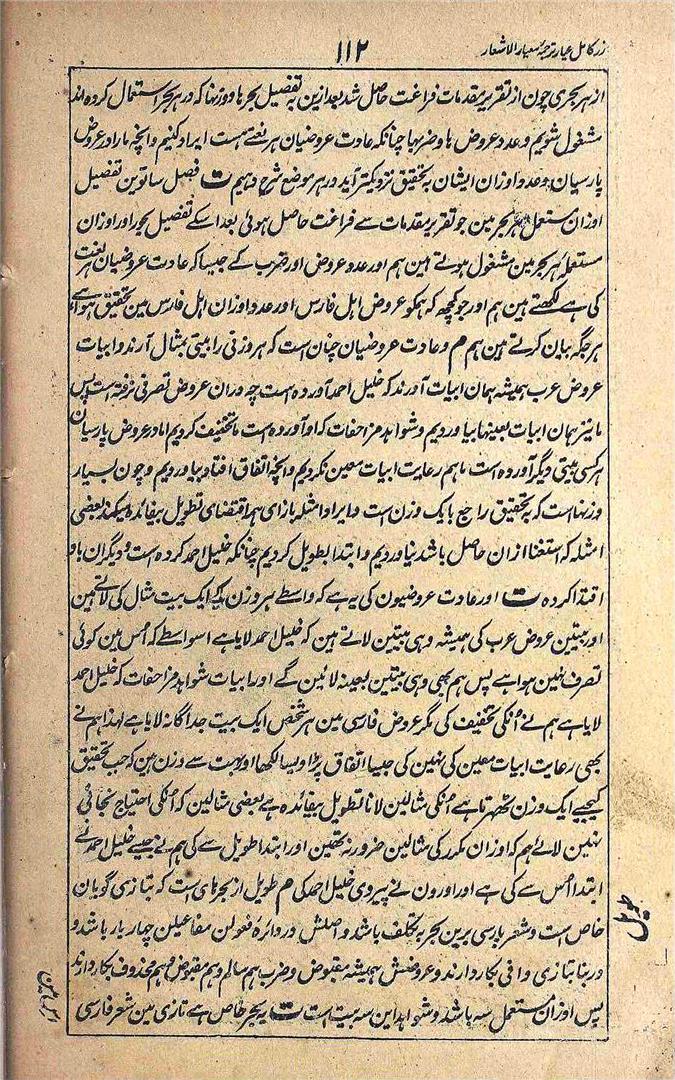 زر کامل عیار ترجمۂ معیار الاشعار
۱۱۲
از ہر بحری چون از تقریر مقدمات فراغت حاصل شد بعد ازین بہ تفصیل بحرہا و وزنہا کہ در ہر بحر استعمال کردہ اند
مشغول شویم و عدد عروض ہا و ضربہا چنانکہ عادت عروضیان ہر لغتے ہست ایراد کنیم و انچہ ما را در عروض
پارسیان و عدد اوزان ایشان بہ تحقیق نزدیکتر آید در ہر موضع شرح دہیم ت فصل ساتوین تفصیل
اوزان مستعمل ہر بحر مین جو تقریر مقدمات سے فراغت حاصل ہوئی بعد اسکے تفصیل بحر اور اوزان
مستعملۂ ہر بحر مین مشغول ہوتے ہین ہم اور عدد عروض اور ضرب کے جیسا کہ عادت عروضیان ہر لغت
کی ہے لکھتے ہین ہم اور جو کچھ کہ ہمکو عروض اہل فارس اور عدد اوزان اہل فارس مین تحقیق ہوا ہے
ہر جگہ بیان کرتے ہین ہم م و عادت عروضیان چنان است کہ ہر وزنی را بیتی بمثال آرند و ابیات
عروض عرب ہمیشہ ہمان ابیات آورند کہ خلیل احمد آوردہ است چہ دران عروض تصرفی نرفتہ است پس
ما نیز ہمان ابیات بعینہا بیاوردیم و شواہد مزاحفات کہ او آوردہ است ما تخفیف کردیم اما در عروض پارسیان
ہر کسی بیتی دیگر آوردہ است ما ہم رعایت ابیات معین نکردیم و انچہ اتفاق افتاد بیاوردیم و چون بسیار
وزنہاست کہ بہ تحقیق راجع با یک وزن است و ایراد امثلہ بازای ہمہ اقتضای تطویل بیفائدہ میکند بعضی
امثلہ کہ استغنا ازان حاصل باشد نیاوردیم و ابتدا بطویل کردیم چنانکہ خلیل احمد کردہ است و دیگران باو
اقتدا کردہ ت اور عادت عروضیون کی یہ ہے کہ واسطے ہر وزن کے ایک بیت مثال کی لاتے ہین
اور بیتین عروض عرب کی ہمیشہ وہی بیتین لاتے ہین کہ خلیل احمد لایا ہے اسواسطے کہ اُس مین کوئی
تصرف نہین ہوا ہے پس ہم بھی وہی بیتین بعینہ لائین گے اور ابیات شواہد مزاحفات کہ خلیل احمد
لایا ہے ہم نے اُنکی تخفیف کی مگر عروض فارسی مین ہر شخص ایک بیت جداگانہ لایا ہے لہذا ہم نے
بھی رعایت ابیات معین کی نہین کی جیسا اتفاق پڑا ویسا لکھا اور بہت سے وزن ہین کہ جب تحقیق
کیجیے ایک وزن ٹھہرتا ہے اُنکی مثالین لانا تطویل بیفائدہ ہے بعضی مثالین کہ اُنکی احتیاج نجانی
نہین لائے ہم کہ اوزان مکرر کی مثالین ضرور نہ تھین اور ابتدا طویل سے کی ہم نے جیسے خلیل احمد نے
ابتدا اُس سے کی ہے اور اورون نے پیروی خلیل احمد کی م طویل از بحرہای است کہ بتازی گویان
خاص است و شعر پارسی برین بحر بہ تکلف باشد و اصلش در دائرہ فعولن مفاعیلن چہار بار باشد و
در بنا بتازی وافی بکار دارند و عروضش ہمیشہ مقبوض و ضرب ہم سالم و ہم مقبوض و ہم محذوف بکار دارند
پس اوزان مستعمل سہ باشد و شواہد این سہ بیت است ت یہ بحر خاص ہے تازی مین شعر فارسی
طویل